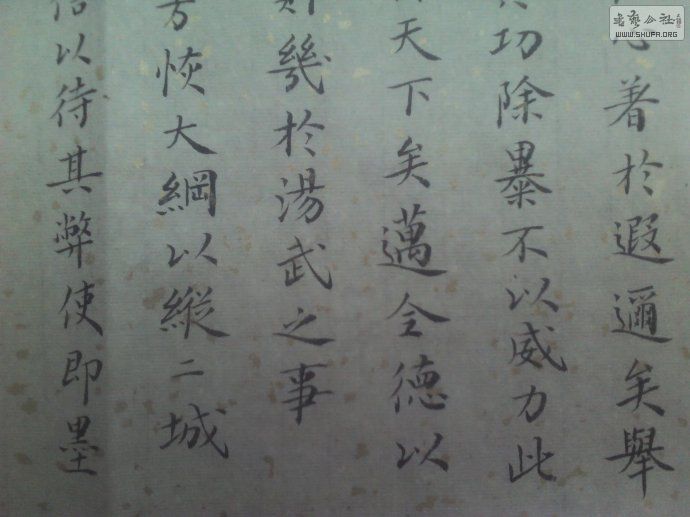 著於遐邇矣舉
功除暴不以威力此
天下矣邁令德以
幾於湯武之事
方恢大綱以縱二城
以待其弊使即墨
書藝公社
WWW.SHUFA.ORG